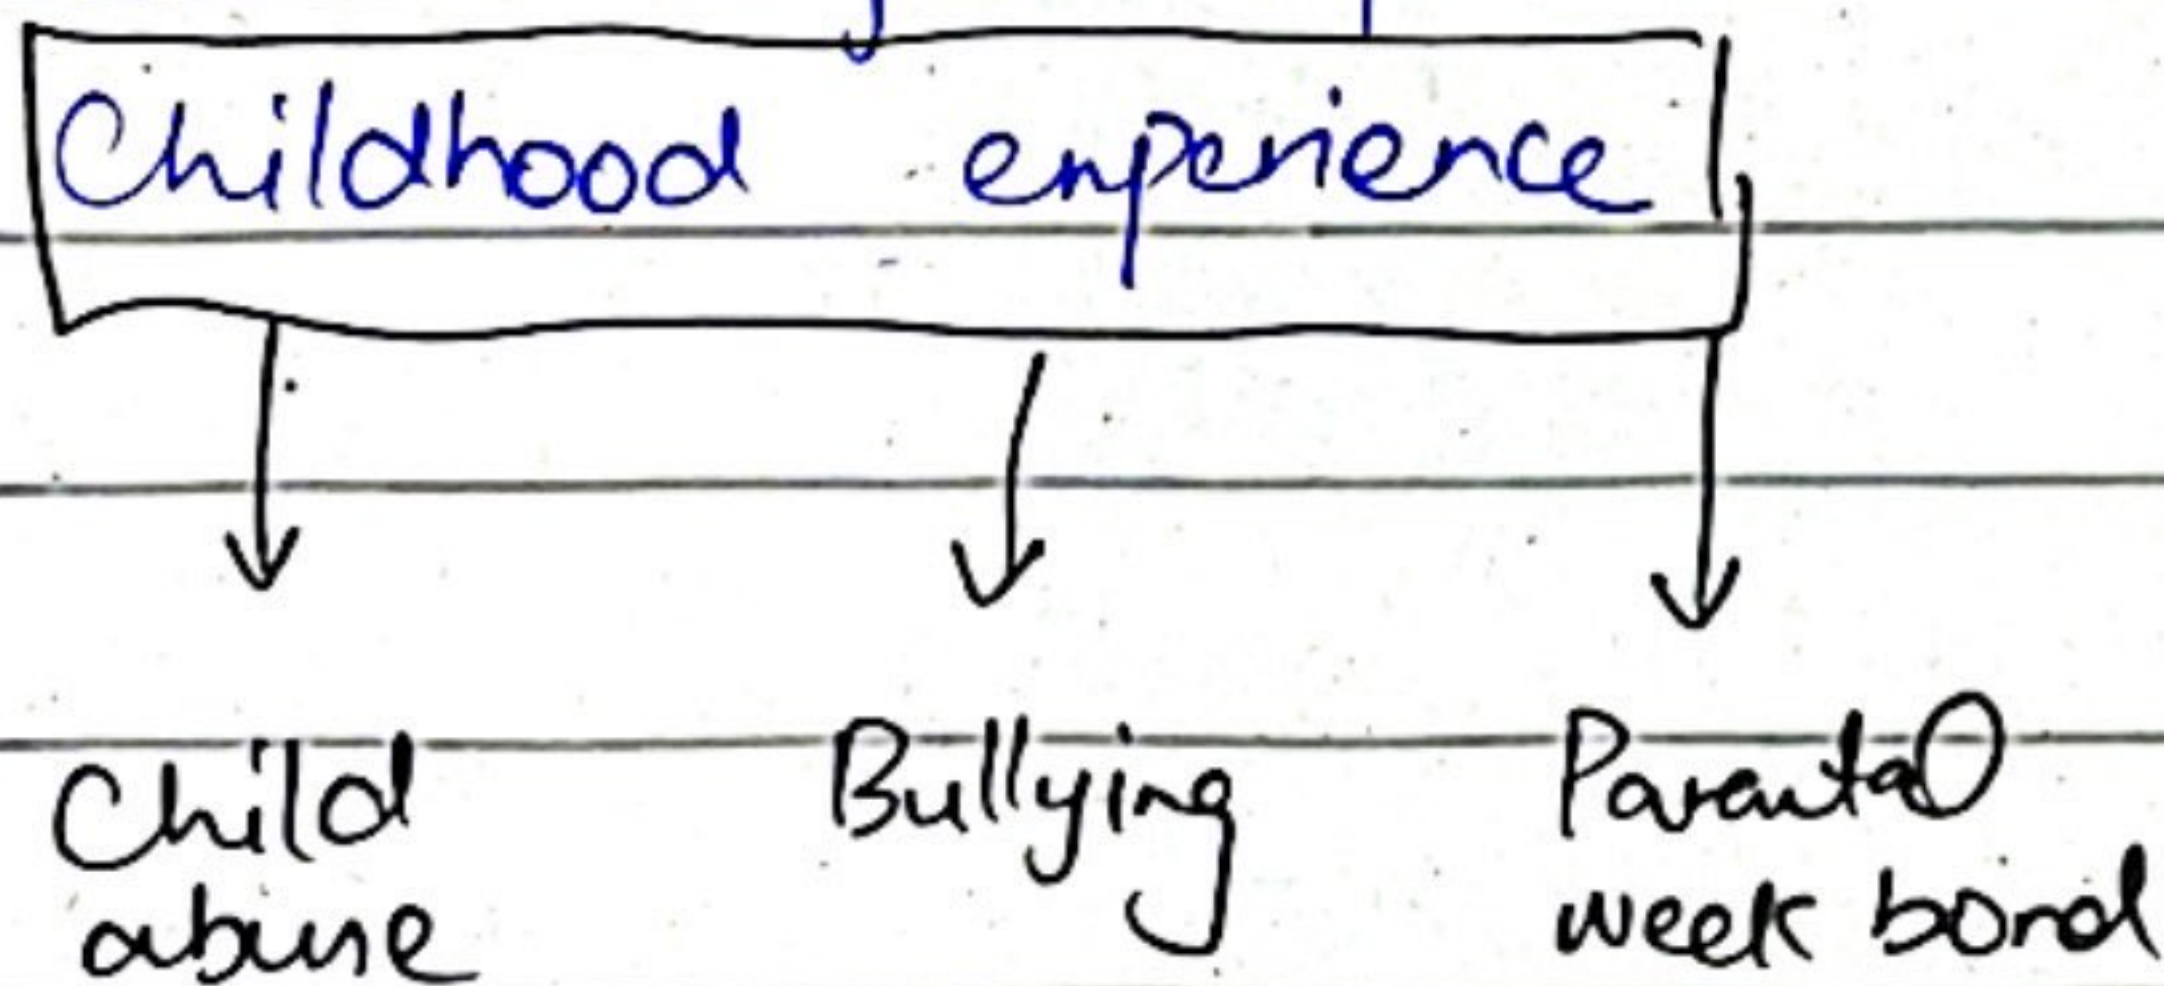 Childhood experience
Child Bullying Parental
abuse week bond